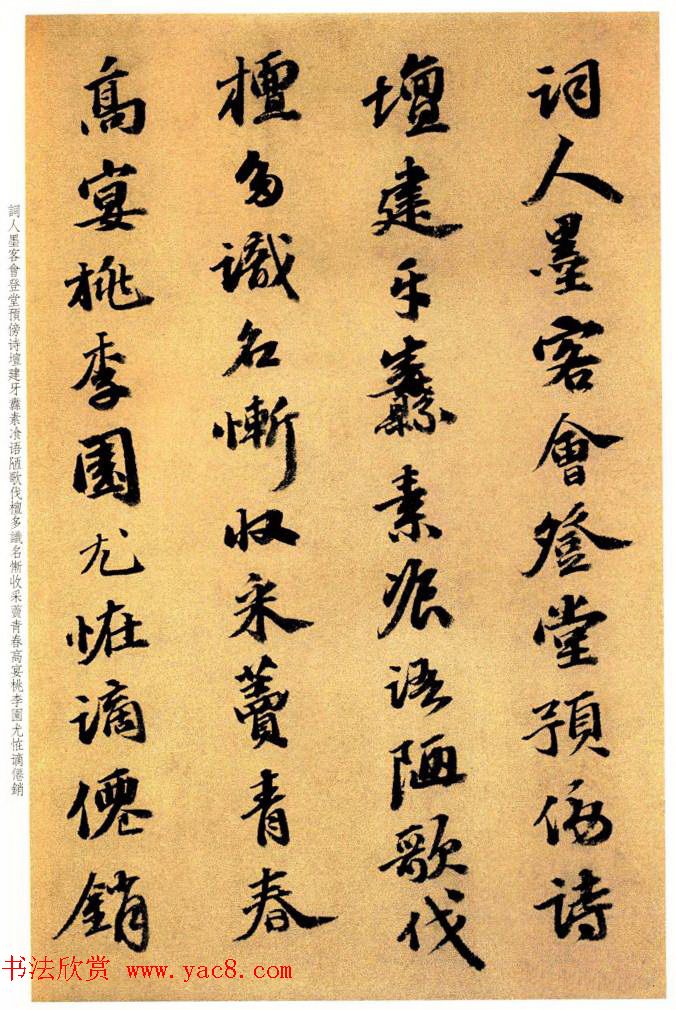 詞人墨客會登堂預傍詩
壇建牙纛素飡語陋歌伐
檀多識名慚收采藚青春
高宴桃李園尤恠謫僊銷
詞人墨客會登堂預傍诗壇建牙纛素飡语陋歌伐檀多識名慚收采藚青春高宴桃李園尤恠谪僊銷
书法欣赏 www.yac8.com